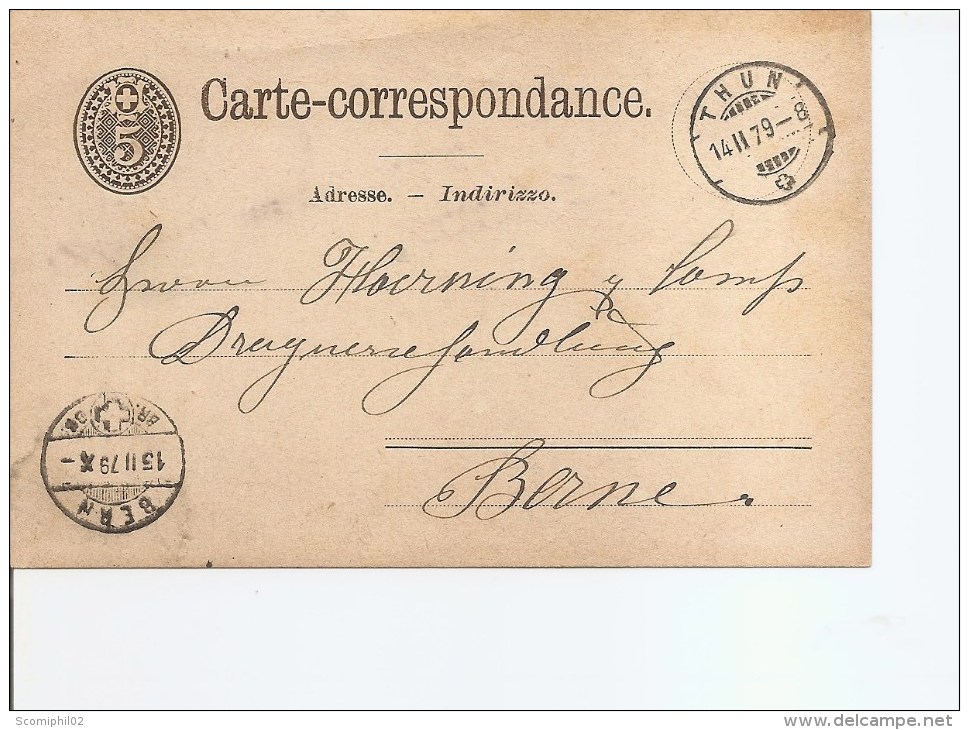 5
Carte-correspondance.
THUN
14 II 79 — 8
Adresse. — Indirizzo.
Herren Hoerning & Comp
Drogueriehandlung
BR. BR.
15 II 79 X —
BERN
Berne.
Scomiphil02
delcampe.net